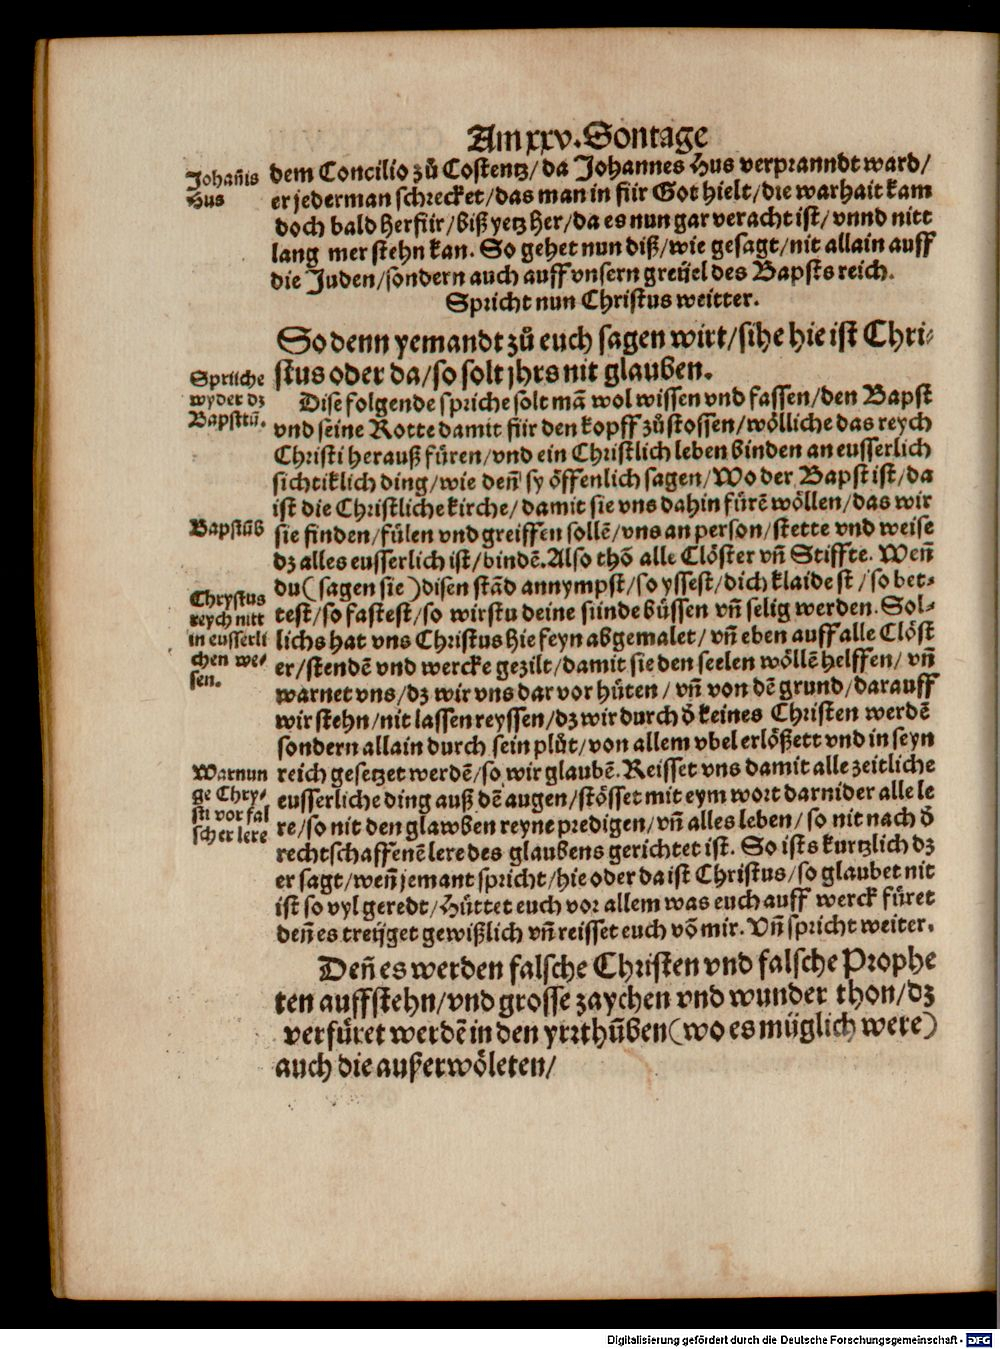 Am xxv. Sontage
Johañis
Hus
dem Concilio zů Costentz/ da Johannes Hus verpranndt ward/
er jederman schrecket/ das man in für Got hielt/ die warhait kam
doch bald herfür/ biß yetz her/ da es nun gar veracht ist/ vnnd nitt
lang mer stehn kan. So gehet nun diß/ wie gesagt/ nit allain auff
die Juden/ sondern auch auff vnsern greüel des Bapsts reich.
Spricht nun Christus weitter.
So denn yemandt zů euch sagen wirt/ sihe hie ist Chri-
stus oder da/ so solt jhrs nit glauben.
Sprüche
wyder dz
Bapsttũ.
Dise folgende spriche solt mã wol wissen vnd fassen/ den Bapst
vnd seine Rotte damit für den kopff zůstossen/ wölliche das reych
Christi herauß füren/ vnd ein Christlich leben binden an eusserlich
sichtiklich ding/ wie deñ sy öffenlich sagen/ Wo der Bapst ist/ da
ist die Christliche kirche/ damit sie vns dahin fürẽ wöllen/ das wir
Bapstũß
sie finden/ fülen vnd greiffen sollẽ/ vns an person/ stette vnd weise
dz alles eusserlich ist/ bindẽ. Also thõ alle Clöster vñ Stiffte. Weñ
du (sagen sie) disen stãd annympst/ so yssest/ dich klaidest/ so bet-
Chrystus
reych nitt
in eusserli
chen we-
sen.
test/ so fastest/ so wirstu deine sünde büssen vñ selig werden. Sol-
lichs hat vns Christus hie feyn abgemalet/ vñ eben auff alle Clöst
er/ stendẽ vnd wercke gezilt/ damit sie den seelen wöllẽ helffen/ vñ
warnet vns/ dz wir vns dar vor hüten/ vñ von dẽ grund/ darauff
wir stehn/ nit lassen reyssen/ dz wir durch d̃ keines Christen werdẽ
sondern allain durch sein plůt/ von allem vbel erlößett vnd in seyn
Warnun
ge Chry-
sti vor fal
scher lere
reich gesetzet werdẽ/ so wir glaubẽ. Reisset vns damit alle zeitliche
eusserliche ding auß dẽ augen/ stösset mit eym wort darnider alle le
re/ so nit den glawben reyne predigen/ vñ alles leben/ so nit nach d̃
rechtschaffenẽ lere des glaubens gerichtet ist. So ists kurtzlich dz
er sagt/ weñ jemant spricht/ hie oder da ist Christus/ so glaubet nit
ist so vyl geredt/ Hüttet euch vor allem was euch auff werck füret
deñ es treüget gewißlich vñ reisset euch võ mir. Vñ spricht weiter.
Deñ es werden falsche Christen vnd falsche Prophe
ten auffstehn/ vnd grosse zaychen vnd wunder thon/ dz
verfüret werdẽ in den yrrthũben (wo es müglich were)
auch die außerwöleten/
Digitalisierung gefördert durch die Deutsche Forschungsgemeinschaft - DFG